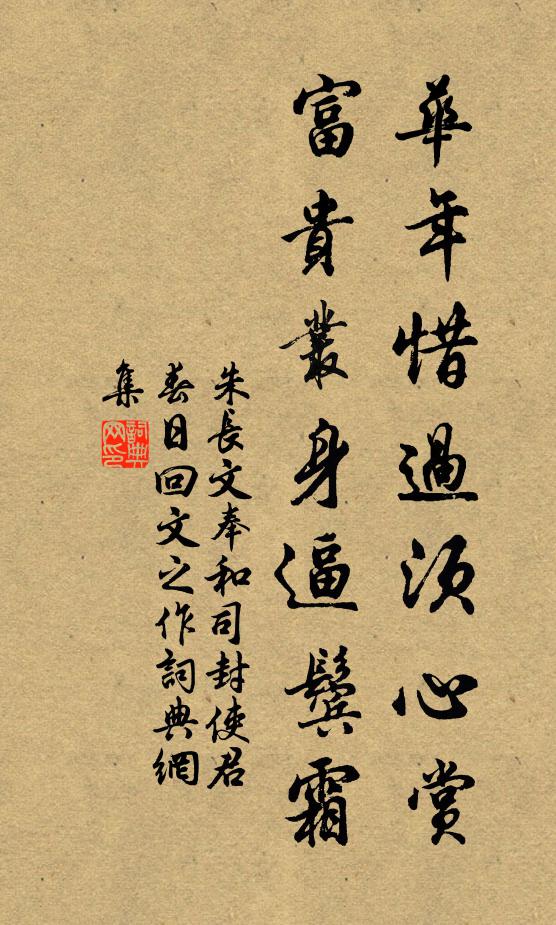 華年惜過須心賞
富貴叢身逼鬢霜
朱長文奉和司封使君
春日回文之作詞典網
集
詞典網印